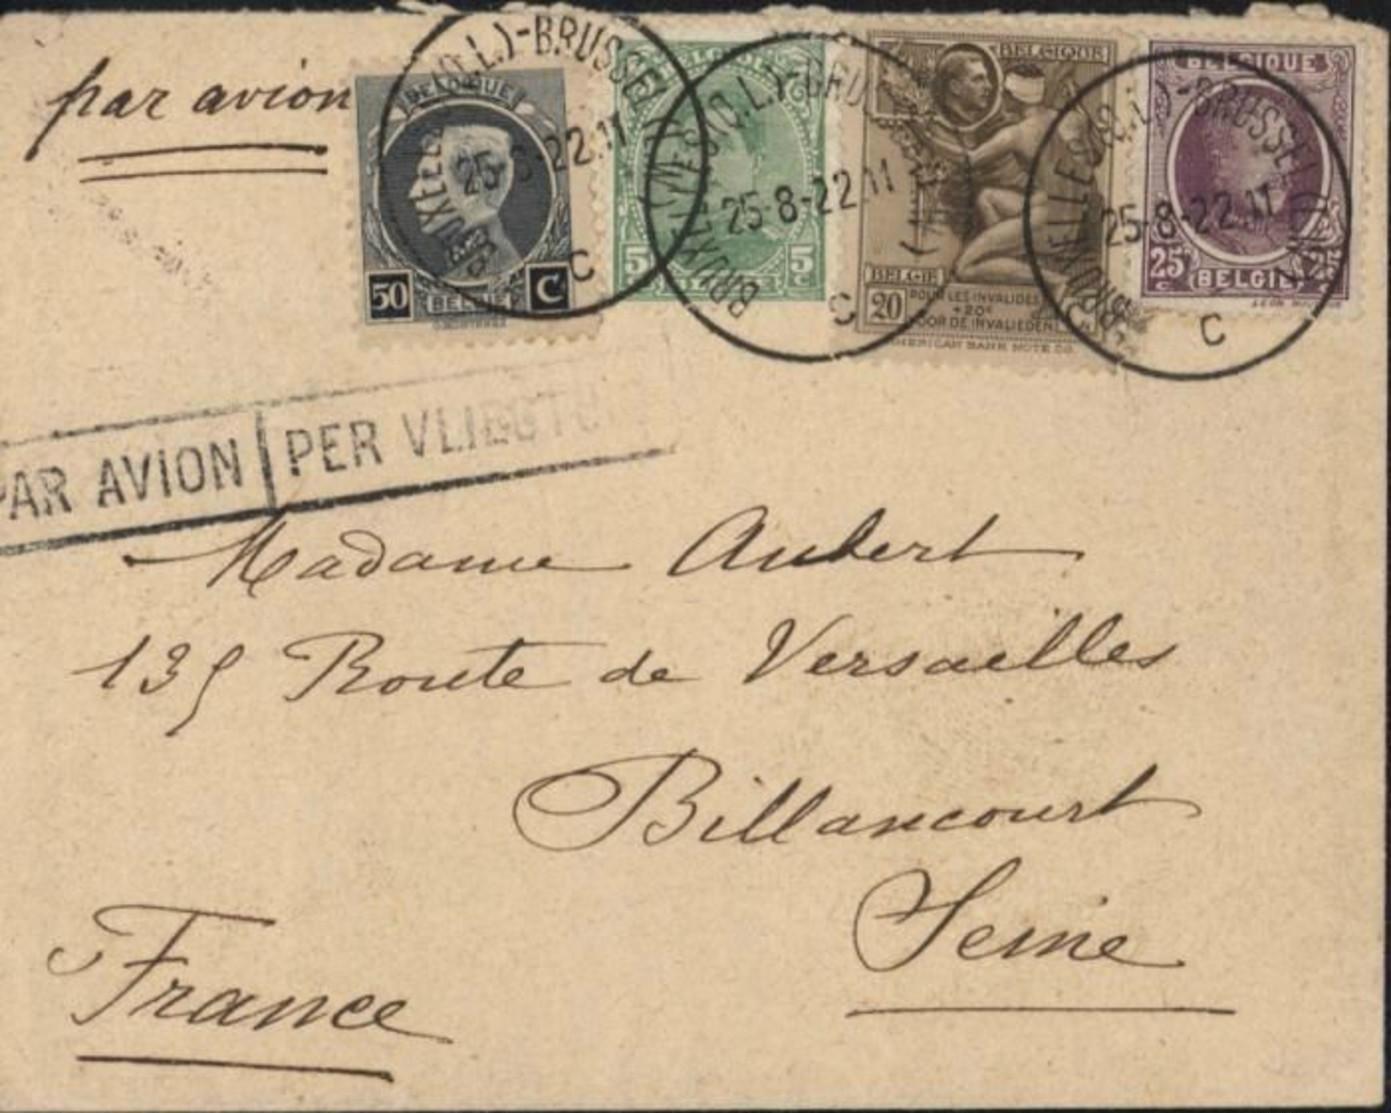 par avion
BELGIQUE
50 C
BELGIË
BELGIQUE
5 c 5 c
BELGIË
BELGIQUE
BELGIË
20
POUR LES INVALIDES
+20c
VOOR DE INVALIEDEN
AMERICAN BANK NOTE CO.
BELGIQUE
25 c BELGIË 25
BRUXELLES (Q.L.)-BRUSSEL
25-8-22.11
C
BRUXELLES (Q.L.)-BRUSSEL
25-8-22.11
C
BRUXELLES (Q.L.)-BRUSSEL
25-8-22.11
C
PAR AVION PER VLIEGTU
Madame Aubert
135 Route de Versailles
Billancourt
Seine
France